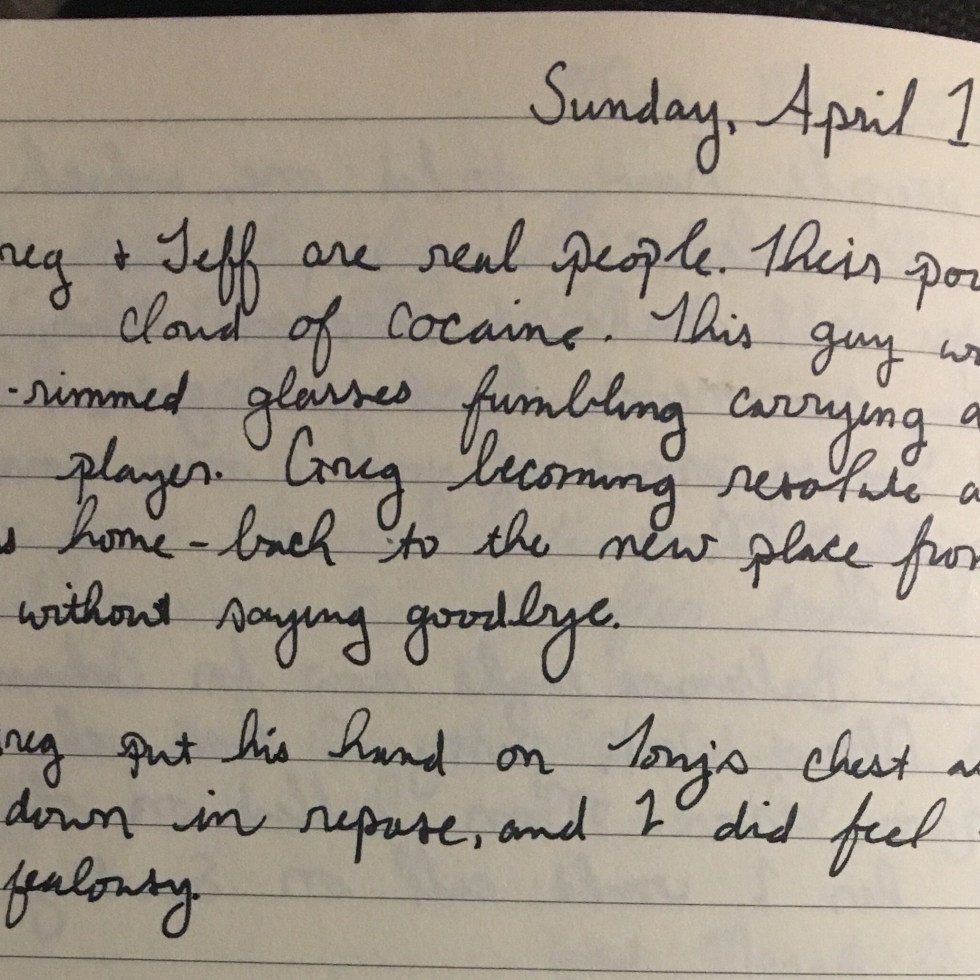 Sunday, April 1
reg + Jeff are real people. Their po
cloud of cocaine. This guy w
-rimmed glasses fumbling carrying a
player. Greg becoming resolute a
s home - back to the new place fro
without saying goodbye.
reg put his hand on Tonj's chest a
down in repose, and I did feel
jealousy.